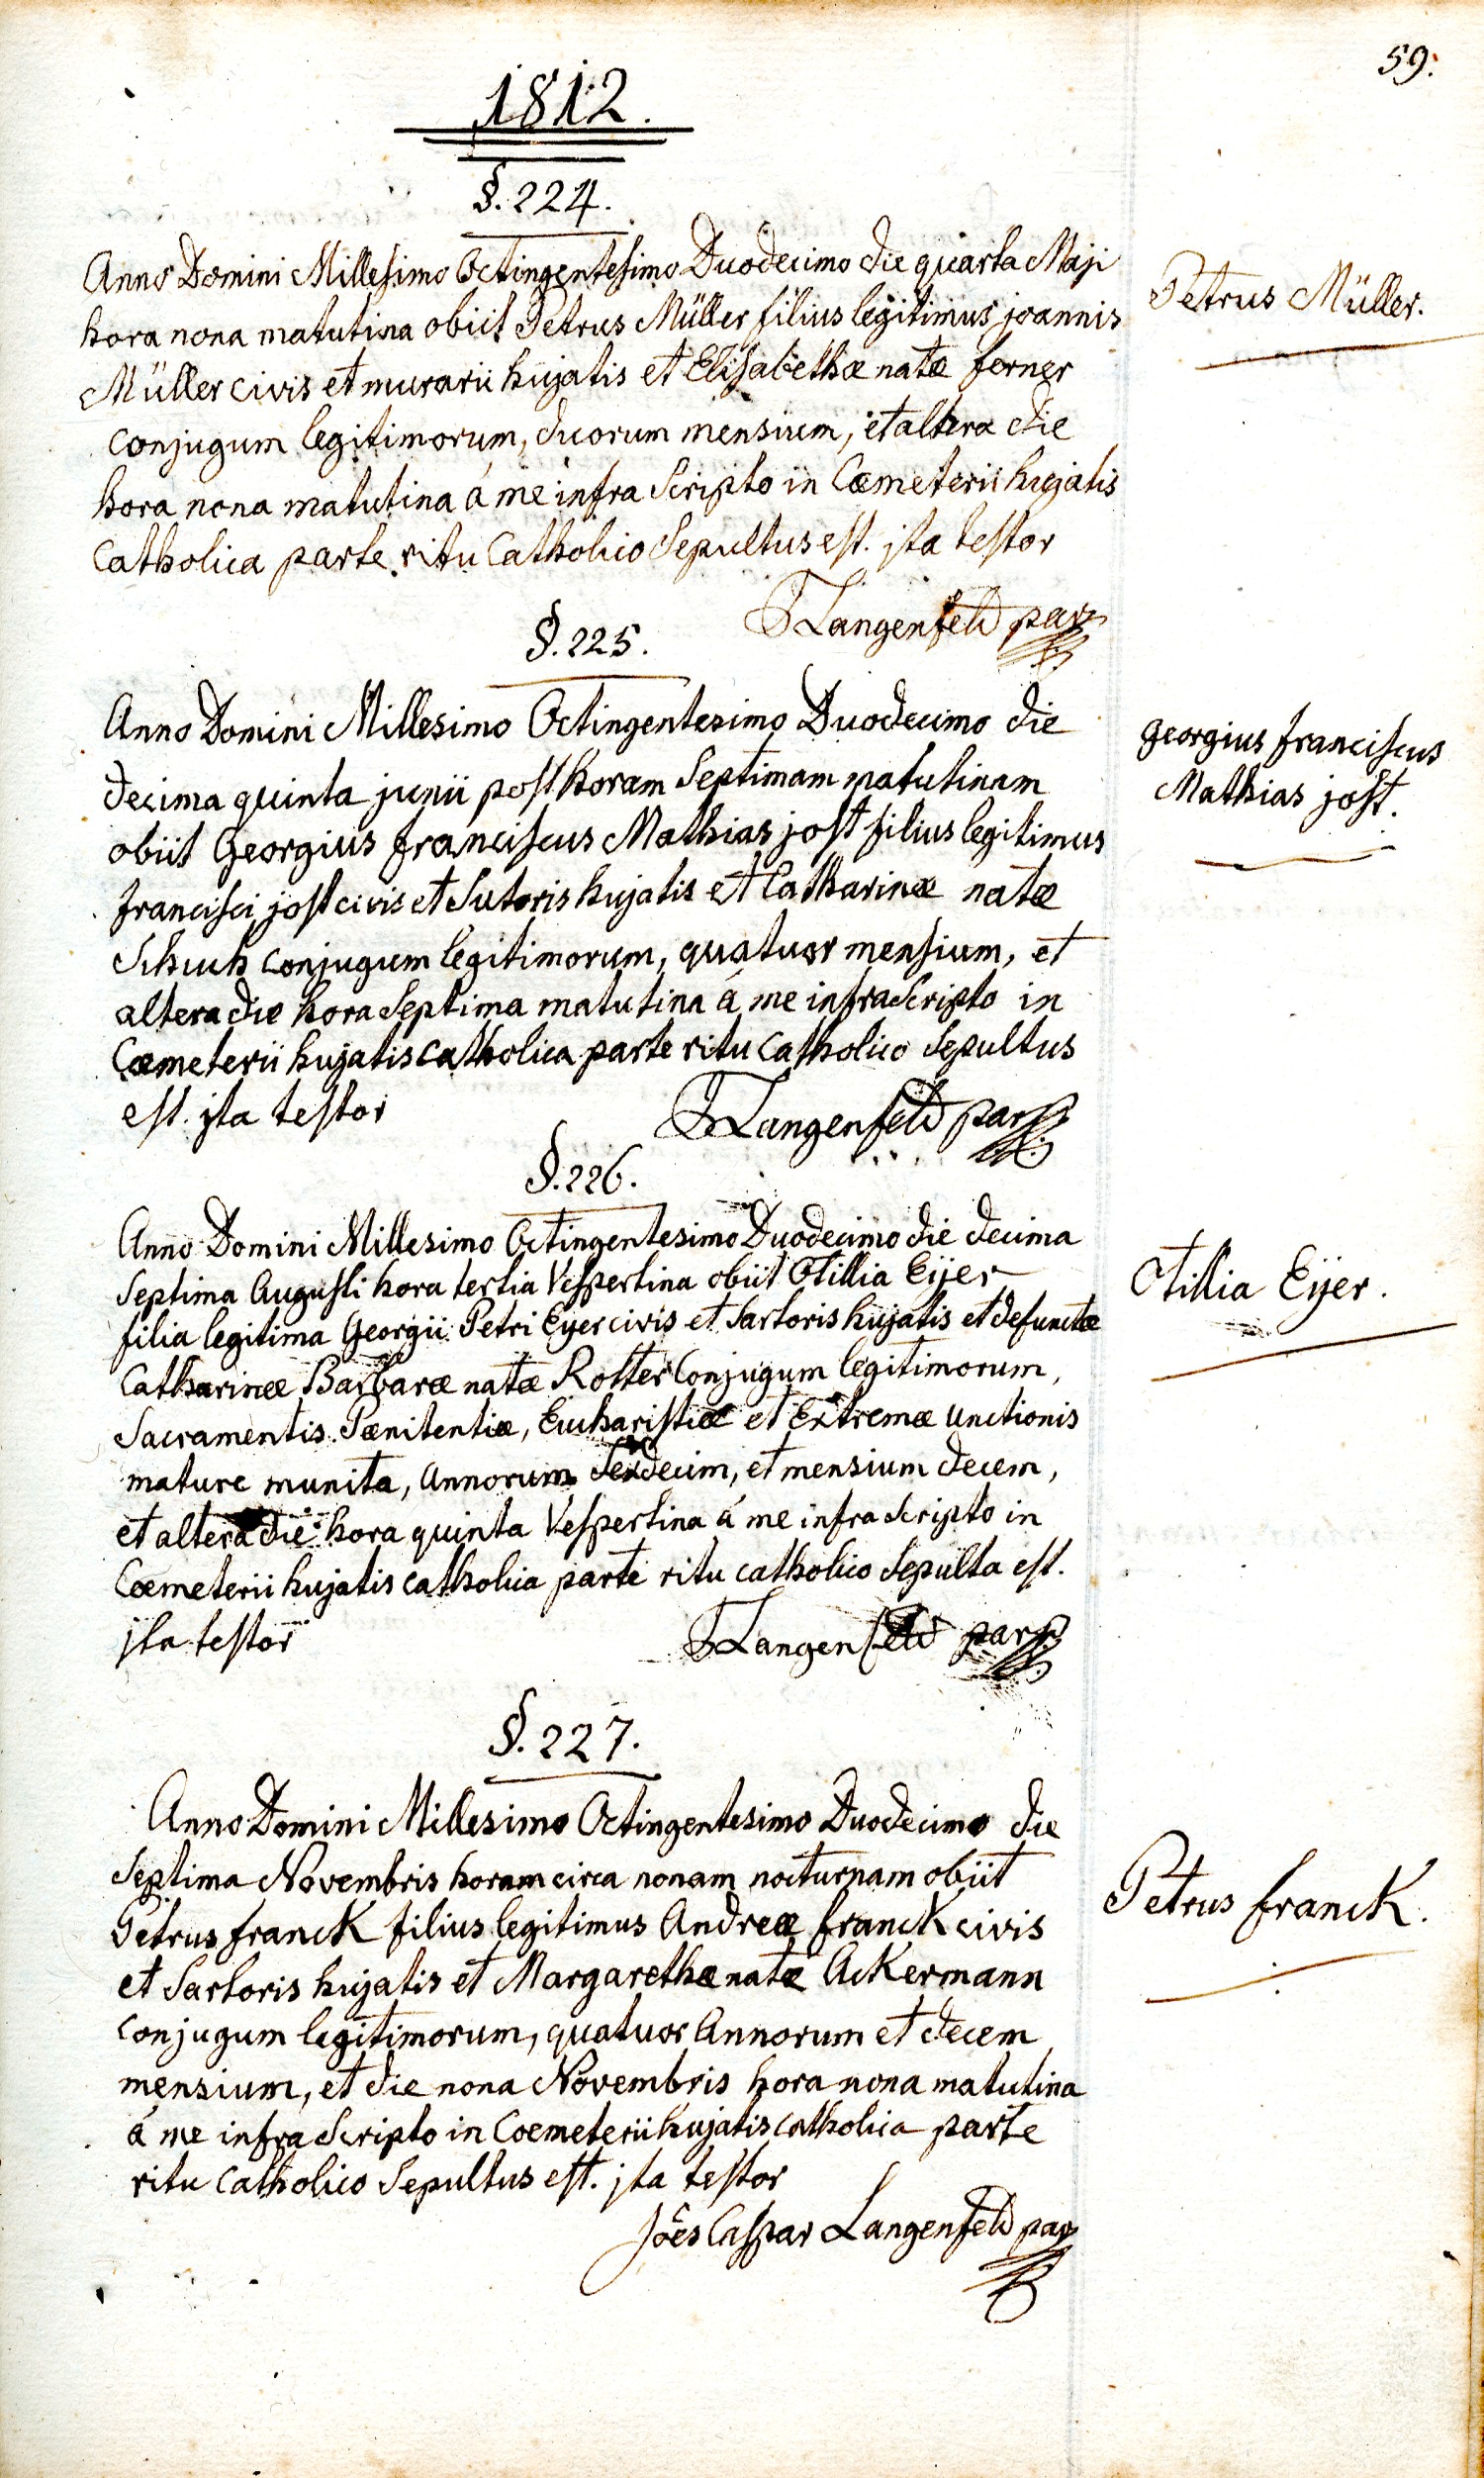 59.
1812.
§. 224.
Anno Domini Millesimo Octingentesimo Duodecimo die quarta Maji
hora nona matutina obiit Petrus Müller filius legitimus joannis
Müller civis et murarii hujatis et Elisabethæ natæ forner
conjugum legitimorum, duorum mensium, et altera die
hora nona matutina á me infra Scripto in Cœmeterii hujatis
Catholica parte ritu Catholico Sepultus est. jta testor
Langenfeld par
Petrus Müller.
§. 225.
Anno Domini Millesimo Octingentesimo Duodecimo die
decima quinta junii post horam Septimam matutinam
obiit Georgius franciscus Mathias jost filius legitimus
francisci jost civis et Sutoris hujatis et Catharinæ natæ
Schuh conjugum legitimorum, quatuor mensium, et
altera die hora Septima matutina á me infra Scripto in
Cœmeterii hujatis catholica parte ritu Catholico Sepultus
est. jta testor
Langenfeld par
Georgius franciscus
Mathias jost.
§. 226.
Anno Domini Millesimo Octingentesimo Duodecimo die decima
Septima Augusti hora tertia Vespertina obiit Otillia Eijer
filia legitima Georgii Petri Eyer civis et Sartoris hujatis et defunctæ
Catharinæ Barbaræ natæ Rotter Conjugum legitimorum,
Sacramentis Pænitentiæ, Eucharistiæ et Extremæ Unctionis
mature munita, Annorum Sexdecim, et mensium decem,
et altera die hora quinta Vespertina á me infra Scripto in
Cœmeterii hujatis catholica parte ritu catholico Sepulta est.
jta testor
Langenfeld par
Otillia Eijer.
§. 227.
Anno Domini Millesimo Octingentesimo Duodecimo die
Septima Novembris horam circa nonam nocturnam obiit
Petrus franck filius legitimus Andreæ franck civis
et Sartoris hujatis et Margarethæ natæ Ackermann
conjugum legitimorum, quatuor Annorum et decem
mensium, et die nona Novembris hora nona matutina
á me infra Scripto in Coemeterii hujatis catholica parte
ritu Catholico Sepultus est. jta testor
Jões Caspar Langenfeld par
Petrus franck.